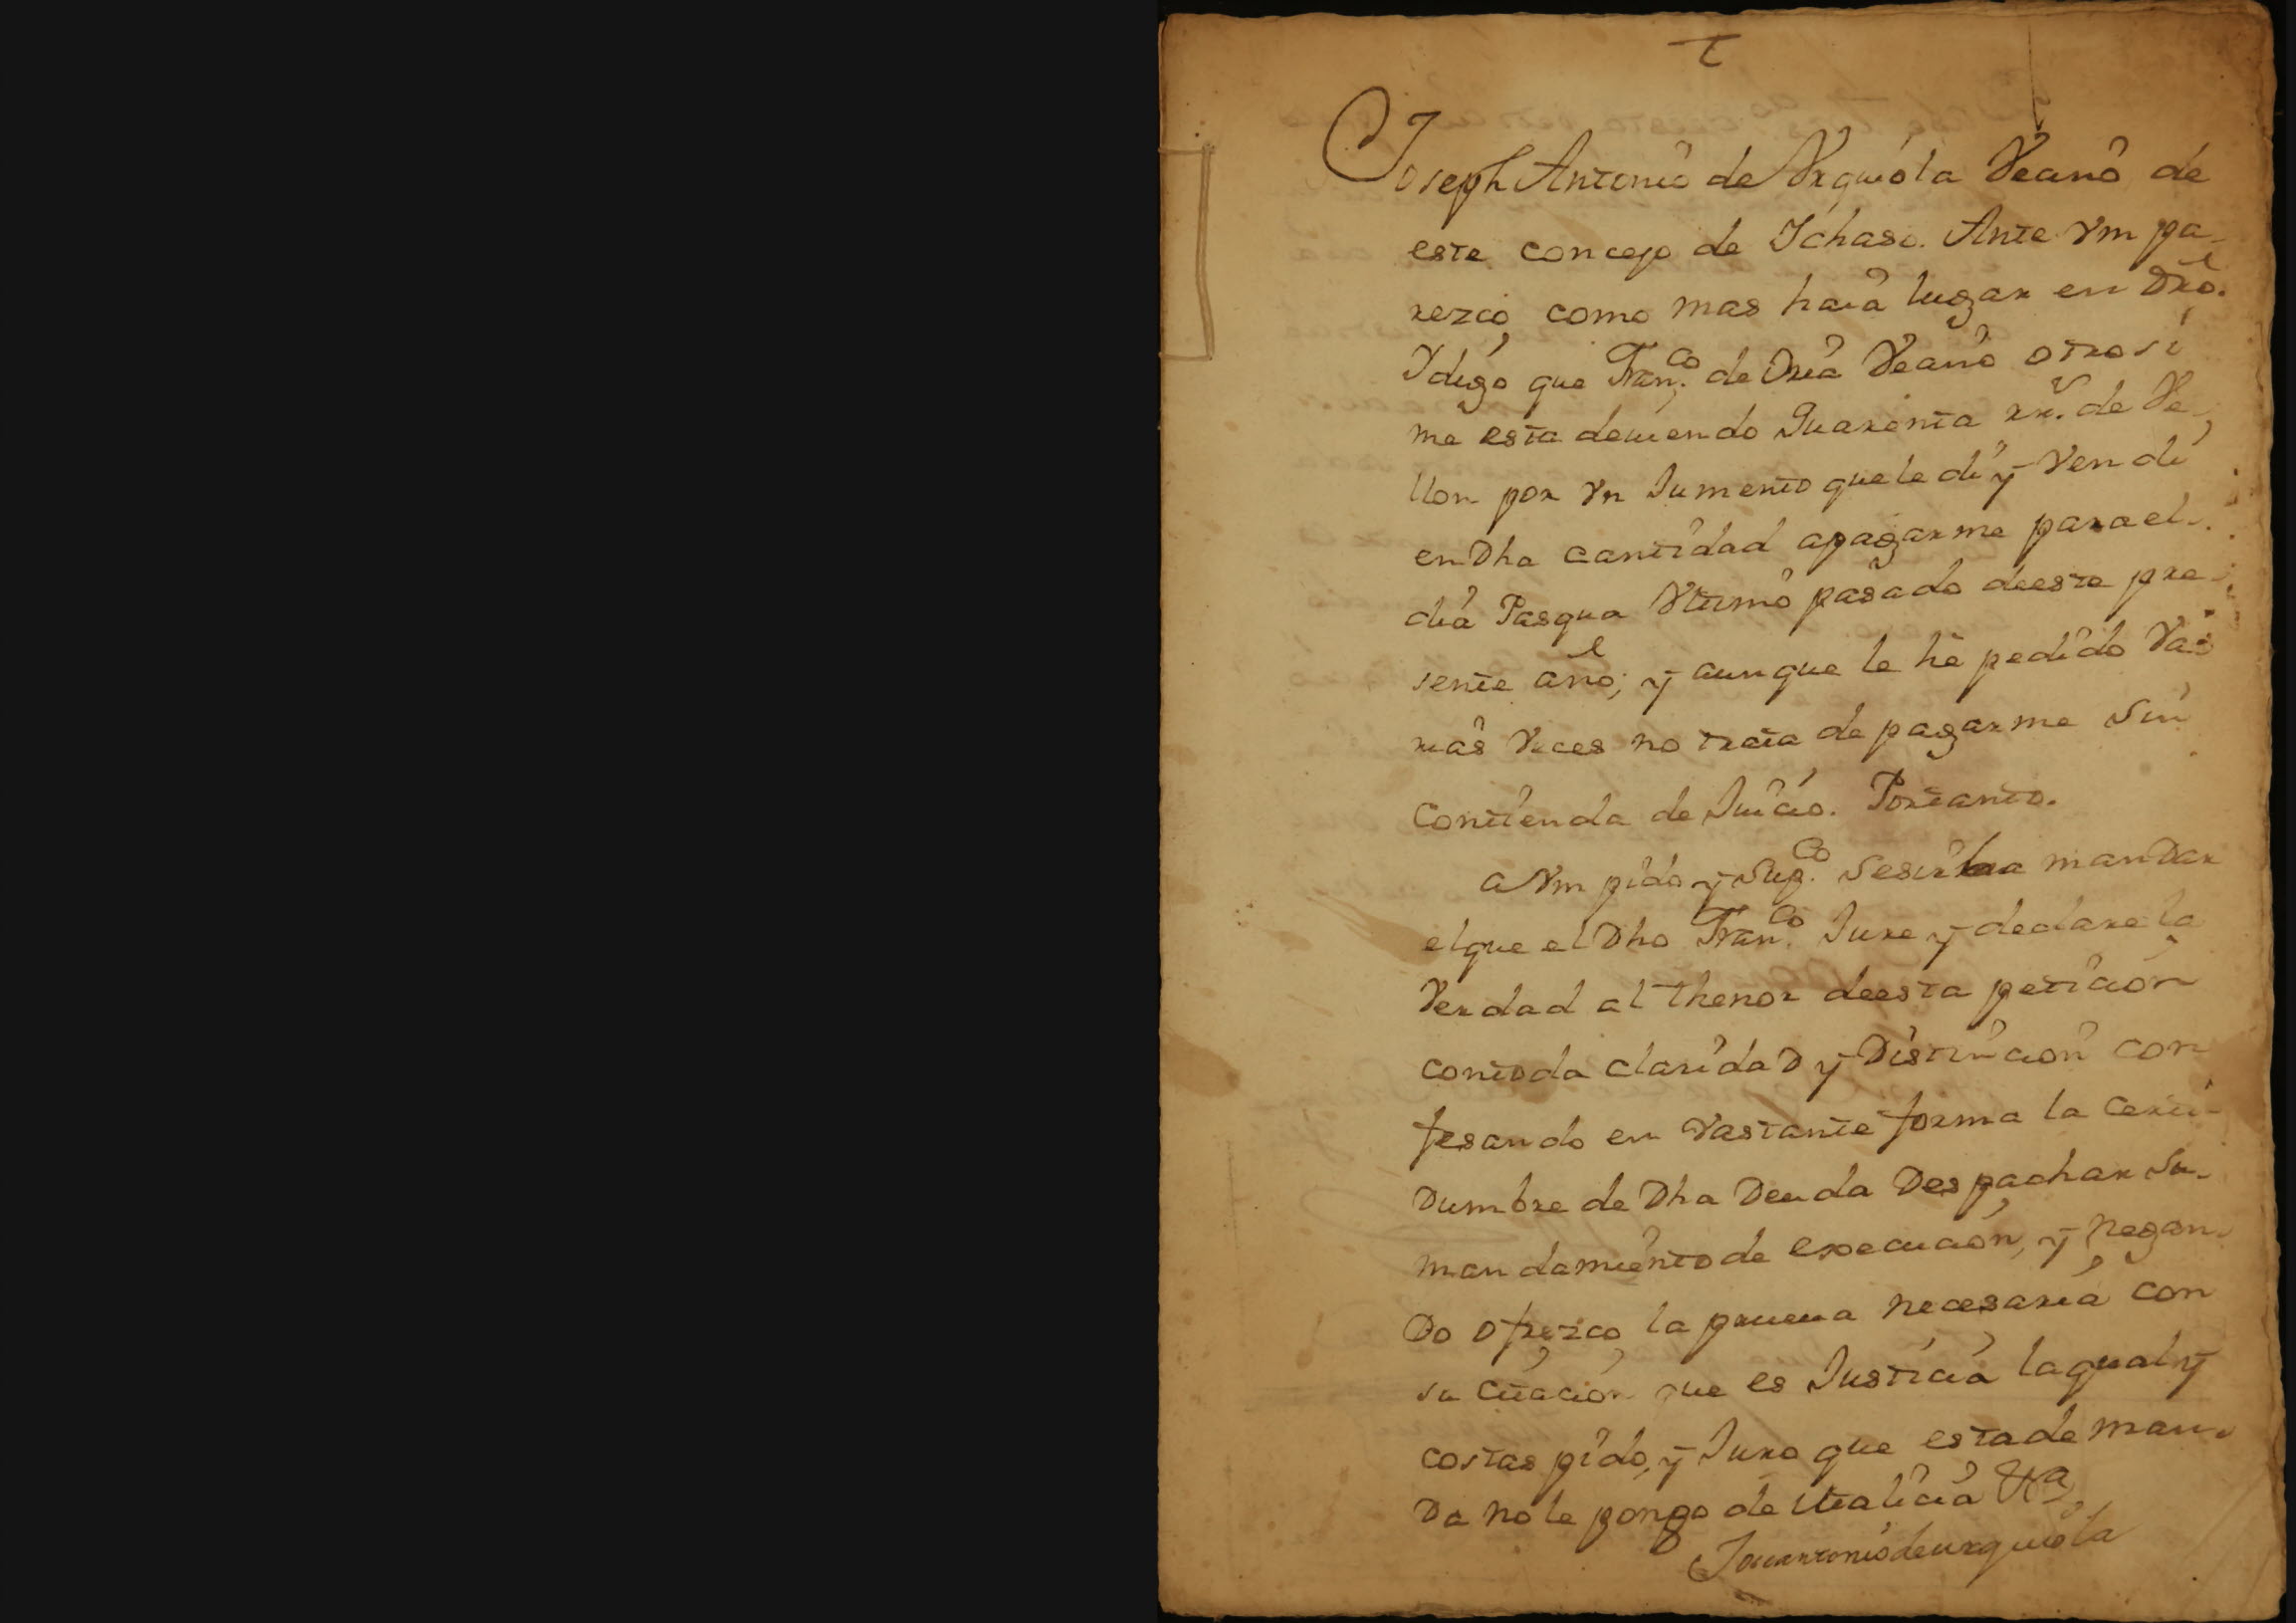 Joseph Antonio de Vrquiola Veçino de
este concejo de Ichaso. Ante Vm pa-
rezco como mas haia lugar en Dro.
I digo que Franco. de Oria Veçino otrosi
me esta deuiendo Quarenta rr. de Ve-
llon por Vn Jumento que le di y Vendi
en Dha cantidad a pagarme para el
dia Pasqua Vltimo pasado de este pre-
sente año; y aunque le he pedido Va-
rias Veces no trata de pagarme sin
contienda de Juicio. Portanto.
a Vm pido y supco. se sirba mandar
el que el Dho Franco. Jure y declare la
Verdad al thenor de esta peticion
con toda claridad y Distincion con
fesando en Vastante forma la certi-
Dumbre de Dha Deuda Despachar su
mandamiento de execucion, y negan-
Do ofrezco la prueua necesaria con
su citacion que es Justicia la qual y
costas pido, y Juro que esta deman-
Da no le pongo de malicia Vta
Joseantonio de urquiola